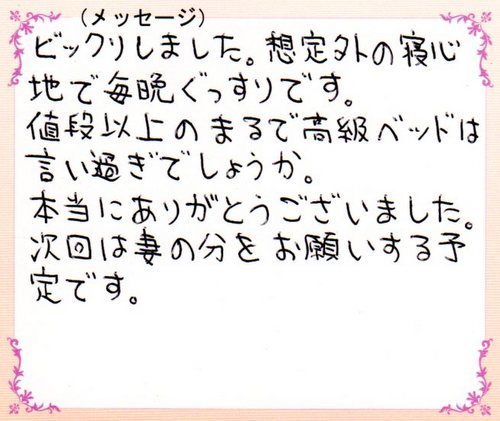 (メッセージ)
ビックリしました。想定外の寝心
地で毎晩ぐっすりです。
値段以上のまるで高級ベッドは
言い過ぎでしょうか。
本当にありがとうございました。
次回は妻の分をお願いする予
定です。